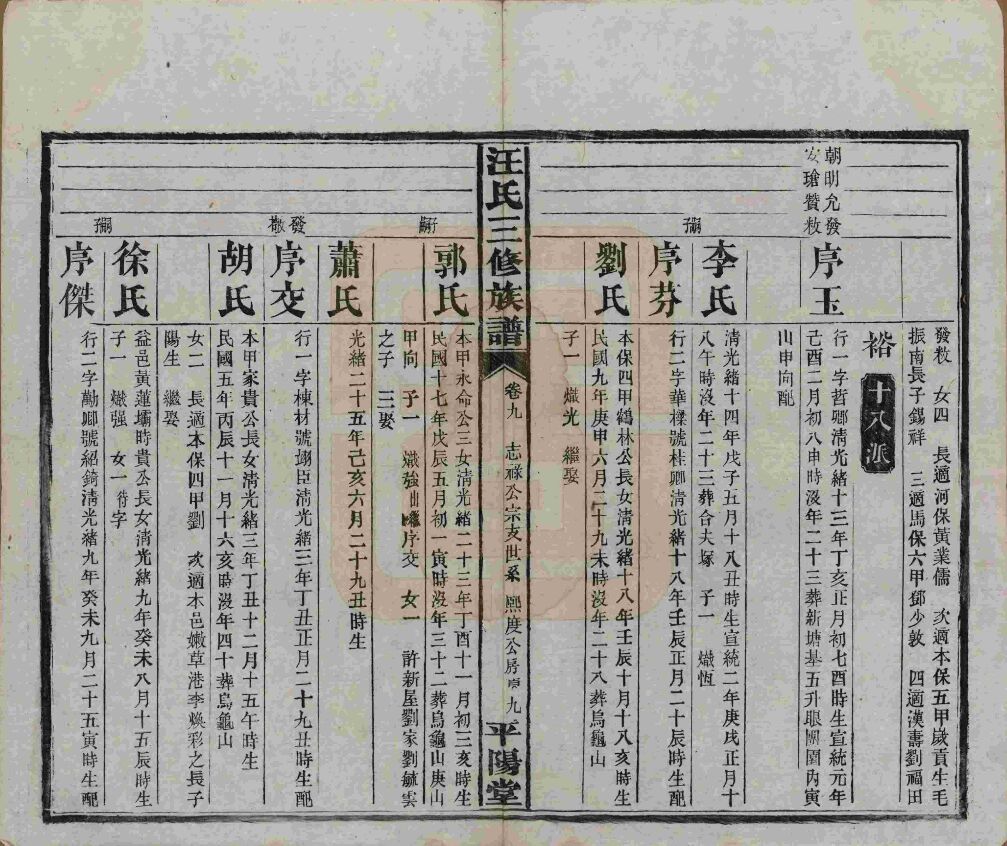 發敕 女四 長適河保黃業儒 次適本保五甲歲貢生毛
振南長子錫祥 三適馬保六甲鄧少敦 四適漢壽劉福田
裕 十八派
朝明允發
安瑲贊敕
序玉
行一字哲卿清光緒十三年丁亥正月初七酉時生宣統元年
己酉二月初八申時沒年二十三葬新塘基五升眼關圍內寅
山申向配
李氏
清光緒十四年戊子五月十八丑時生宣統二年庚戌正月十
八午時沒年二十三葬合夫塚 子一 熾恆
序芬
行二字華樑號桂卿清光緒十八年壬辰正月二十辰時生配
劉氏
本保四甲鶴林公長女清光緒十八年壬辰十月十八亥時生
民國九年庚申六月二十九未時沒年二十八葬烏龜山
子一 熾光 繼娶
汪氏三修族譜 卷九 志祿公宗支世系 熙度公房 九 平陽堂
郭氏
本甲永命公三女清光緒二十三年丁酉十一月初三亥時生
民國十七年戊辰五月初一寅時沒年三十二葬烏龜山庚山
甲向 子一 熾強出繼序交 女一 許新屋劉家劉毓雲
之子 三娶
蕭氏
光緒二十五年己亥六月二十九丑時生
發敕
序交
行一字棟材號翊臣清光緒三年丁丑正月二十九丑時生配
胡氏
本甲家貴公長女清光緒三年丁丑十二月十五午時生
民國五年丙辰十一月十六亥時沒年四十葬烏龜山
女二 長適本保四甲劉 次適本邑嫩草港李煥彩之長子
陽生 繼娶
徐氏
益邑黃蓮壩時貴公長女清光緒九年癸未八月十五辰時生
子一 熾强 女一待字
序傑
行二字勤卿號紹錡清光緒九年癸未九月二十五寅時生配